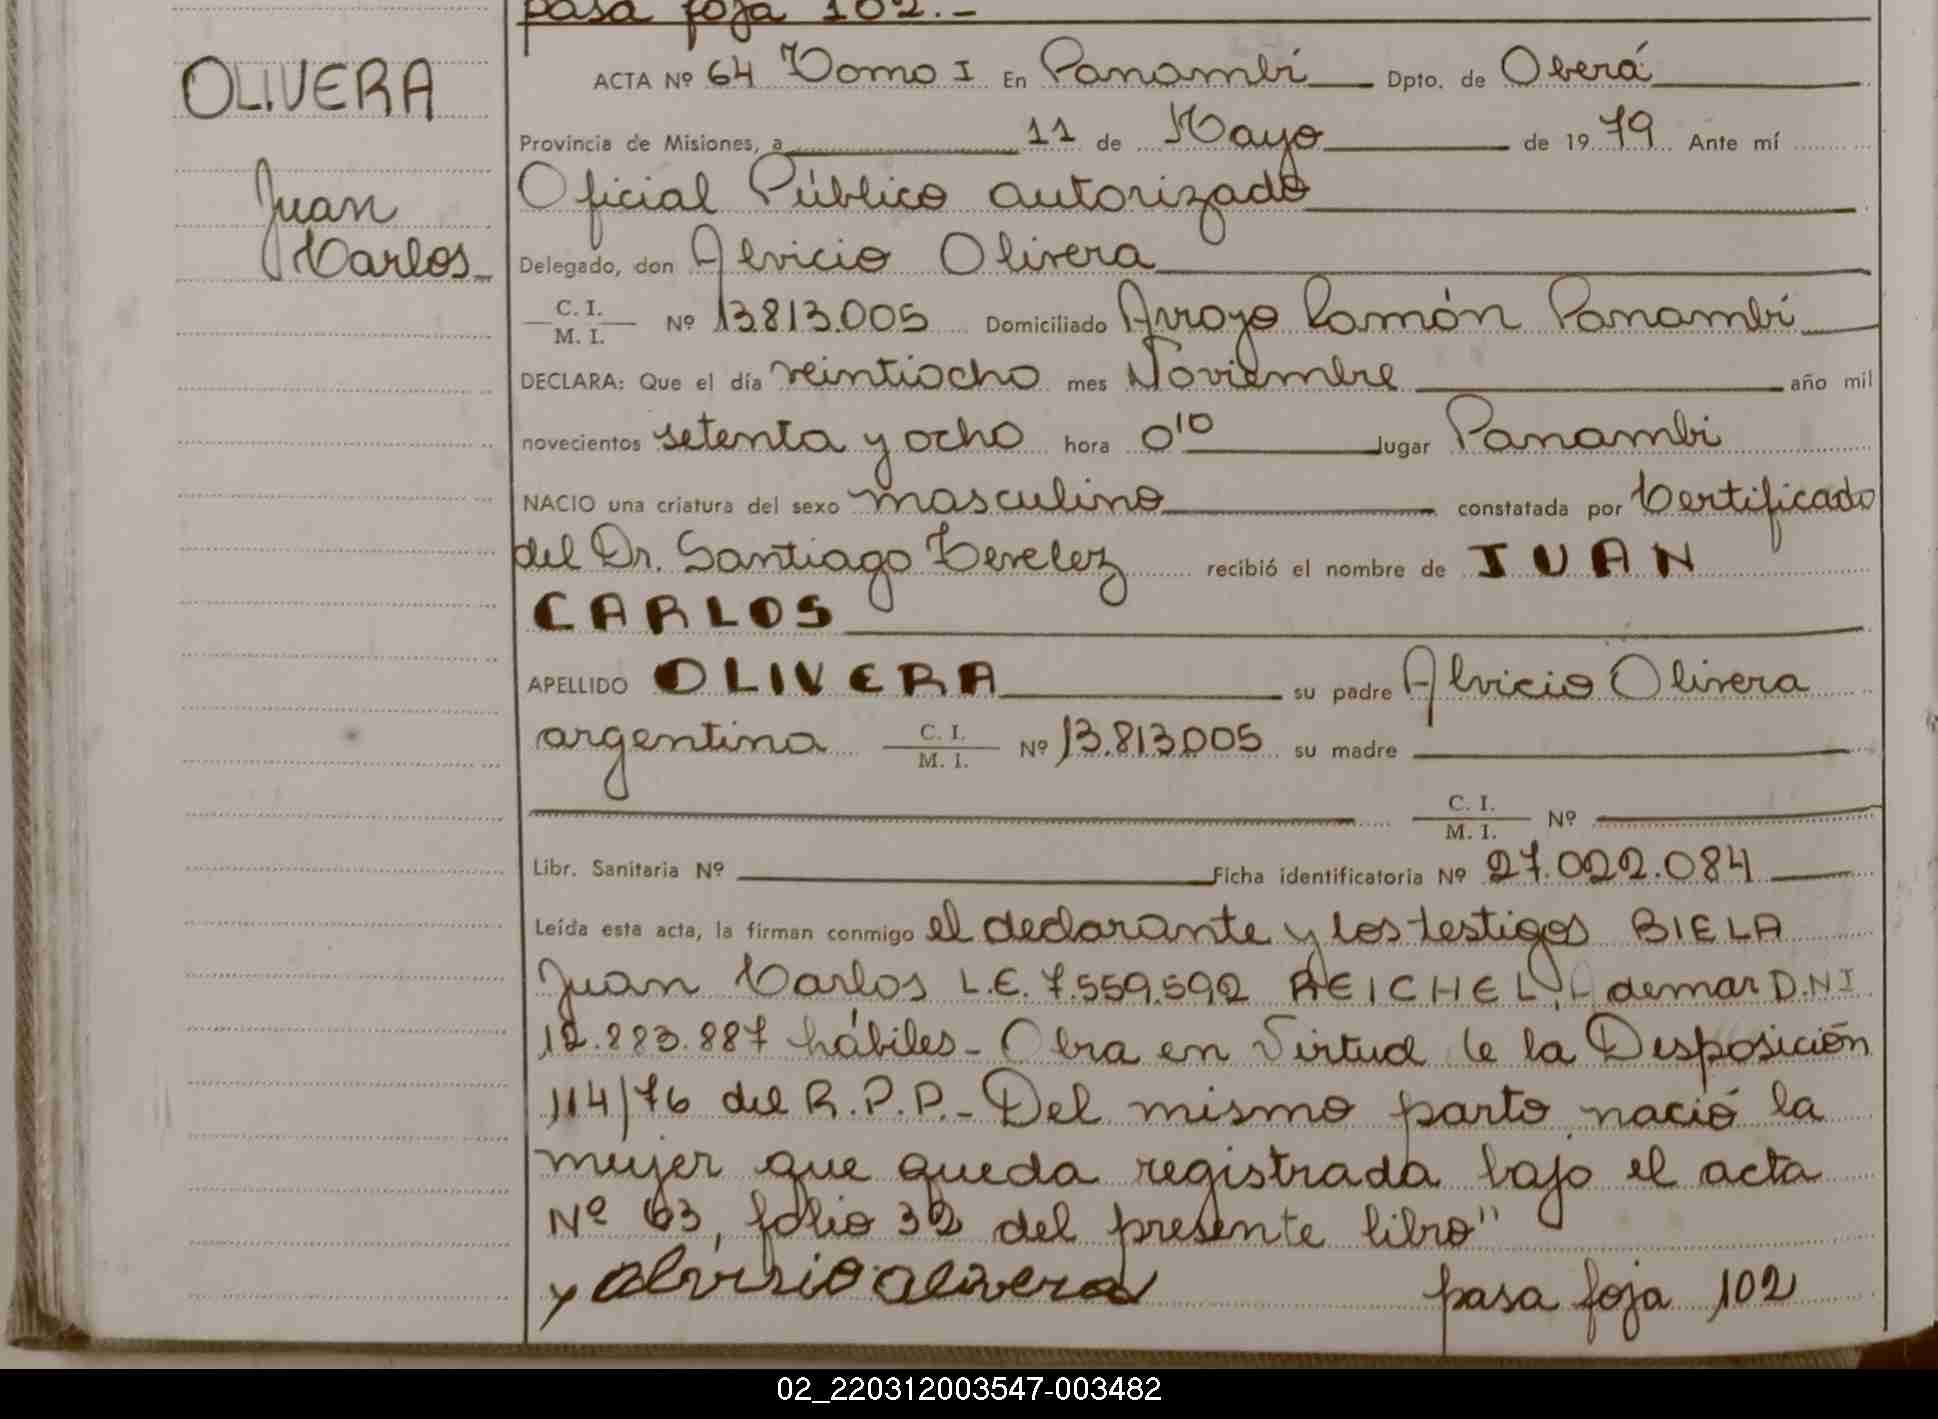 pasa foja 102.-
OLIVERA
Juan
Carlos
ACTA Nº 64 Tomo I En Panambí Dpto. de Oberá
Provincia de Misiones, a 11 de Mayo de 1979 Ante mí
Oficial Público autorizado
Delegado, don Alvicio Olivera
C. I.
M. I. Nº 13.813.005 Domiciliado Arroyo Ramón Panambí
DECLARA: Que el día veintiocho mes Noviembre año mil
novecientos setenta y ocho hora 0'10 lugar Panambi
NACIO una criatura del sexo masculino constatada por Certificado
del Dr. Santiago recibió el nombre de JUAN
CARLOS
APELLIDO OLIVERA su padre Alvicio Olivera
argentina C. I.
M. I. Nº 13.813.005 su madre
C. I.
M. I. Nº
Libr. Sanitaria Nº Ficha identificatoria Nº 27.022.084
Leída esta acta, la firman conmigo el declarante y los testigos BIELA
Juan Carlos L.E. 7.559.592 REICHEL, Ademar D.N.I
12.883.887 hábiles - Obra en Virtud de la Desposición
114/76 del R.P.P.- Del mismo parto nació la
mujer que queda registrada bajo el acta
Nº 63, folio 32 del presente libro"
y alvisio olivera pasa foja 102
02_220312003547-003482